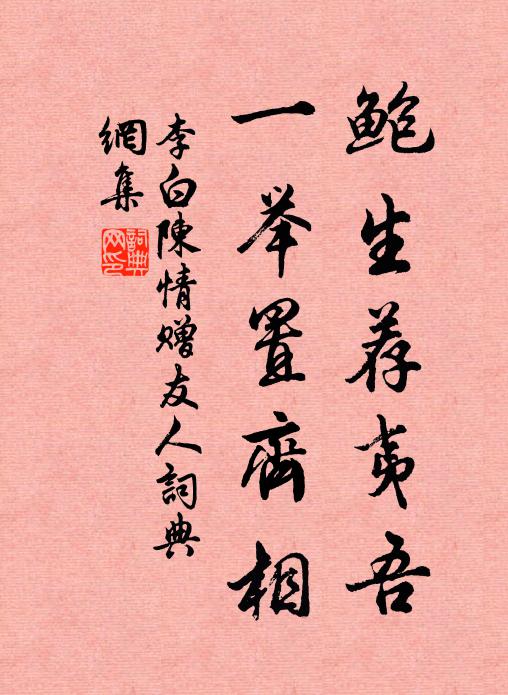 鮑生荐夷吾
一举置齊相
李白陳情赠友人詞典
網集
詞典
网印